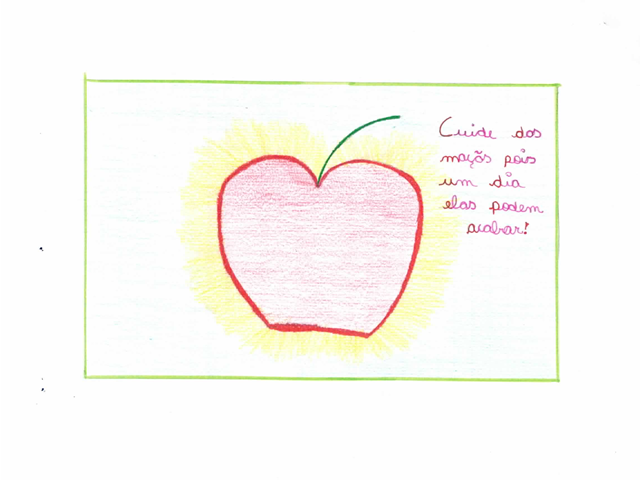 Cuide das
maçãs pois
um dia
elas podem
acabar!